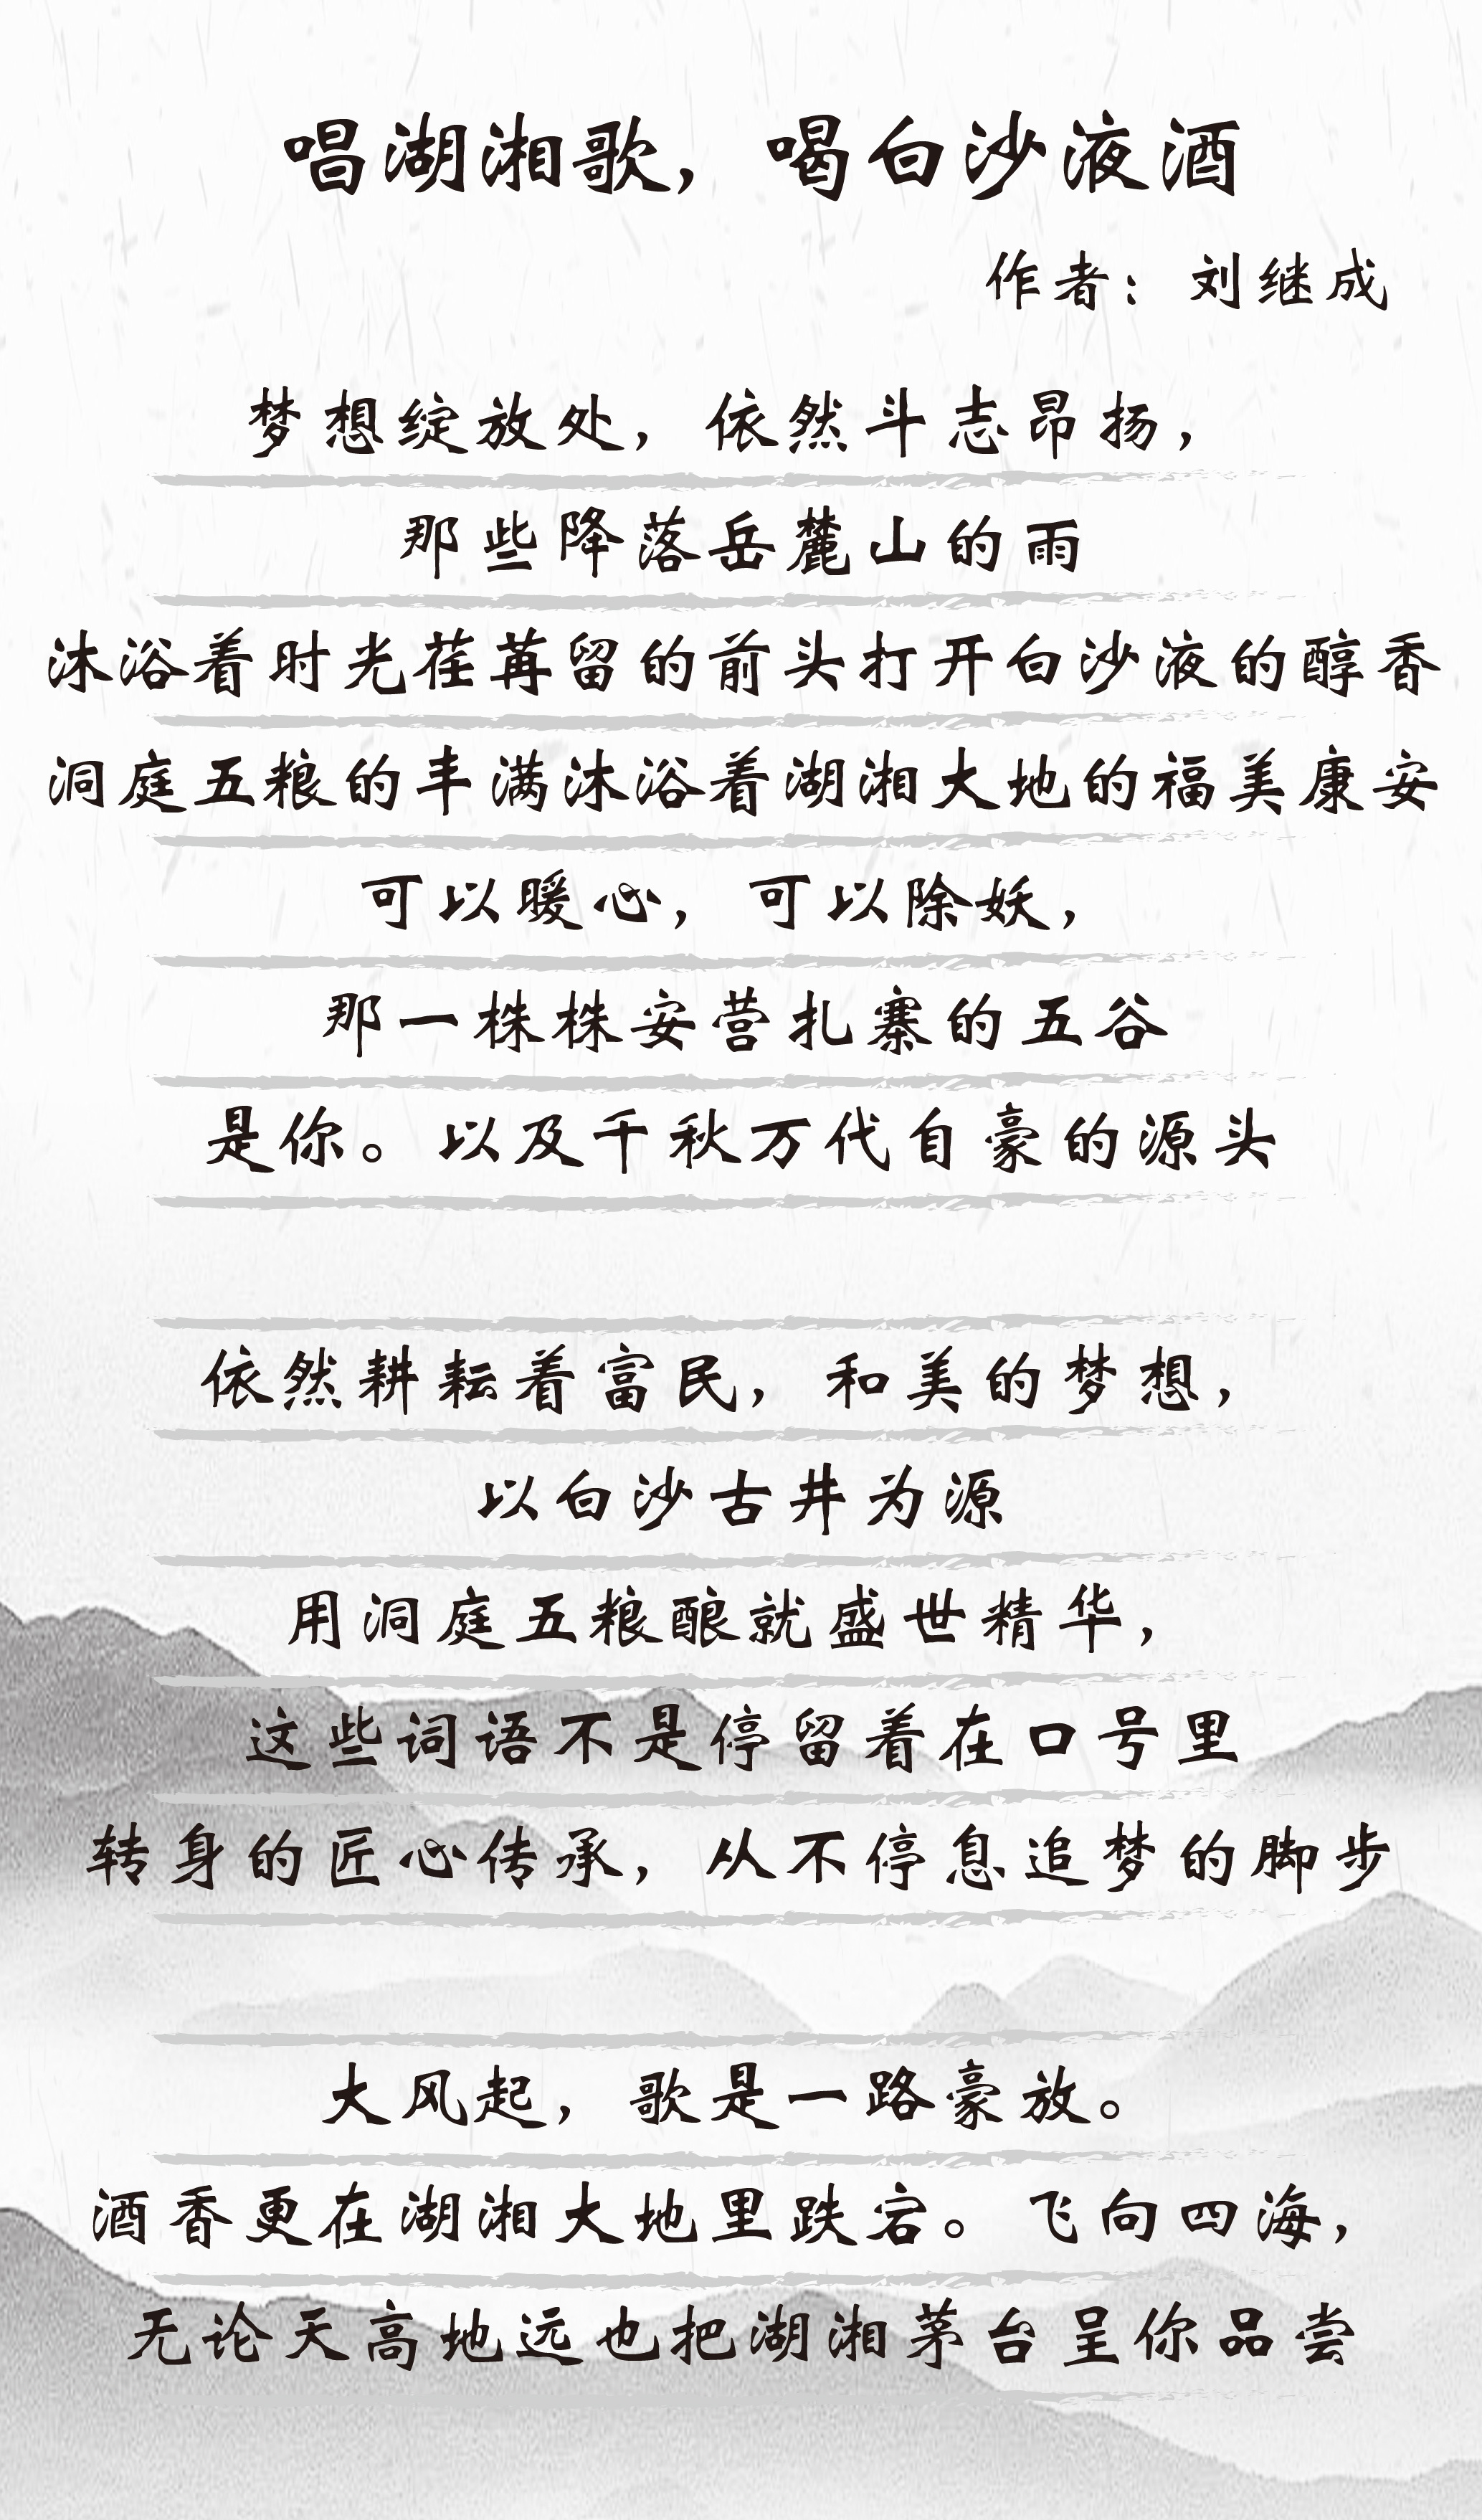 唱湖湘歌，喝白沙液酒
作者：刘继成
梦想绽放处，依然斗志昂扬，
那些降落岳麓山的雨
沐浴着时光荏苒留的前头打开白沙液的醇香
洞庭五粮的丰满沐浴着湖湘大地的福美康安
可以暖心，可以除妖，
那一株株安营扎寨的五谷
是你。以及千秋万代自豪的源头
依然耕耘着富民，和美的梦想，
以白沙古井为源
用洞庭五粮酿就盛世精华，
这些词语不是停留着在口号里
转身的匠心传承，从不停息追梦的脚步
大风起，歌是一路豪放。
酒香更在湖湘大地里跌宕。飞向四海，
无论天高地远也把湖湘茅台呈你品尝